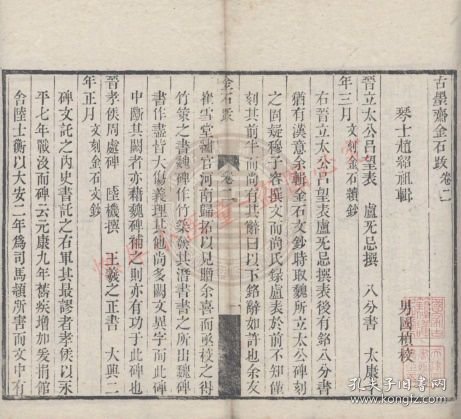 古墨齋金石跋卷二
琴士趙紹祖輯　男國楨校
晉立太公呂望表　盧无忌撰　八分書　太康十
年三月　文刻金石續鈔
右晉立太公呂望表盧无忌撰表後有銘八分書
猶有漢意余輯金石文鈔時取魏所立太公碑刻
之固疑穆子容撰文而尚氏錄盧表於前不知何
刻其前半而尚有其辭曰以下銘辭如許也余友
崔雪堂補官河南歸拓以見贈余喜而亟校之得
竹策之書魏碑作竹策嚴其潛書書之所出魏碑
書作盡皆大傷義理其他尚多闕文異字而此碑
中斷其闕者亦藉魏碑補之則亦有功于此碑也
晉孝侯周處碑　陸機撰　王羲之正書　大興二
年正月　文刻金石文鈔
碑文託之內史書託之右軍其最謬者孝侯以永
平七年戰沒而碑云元康九年舊疾增加奄捐館
舍陸士衡以大安二年為司馬穎所害而文中有
金石跋
卷二